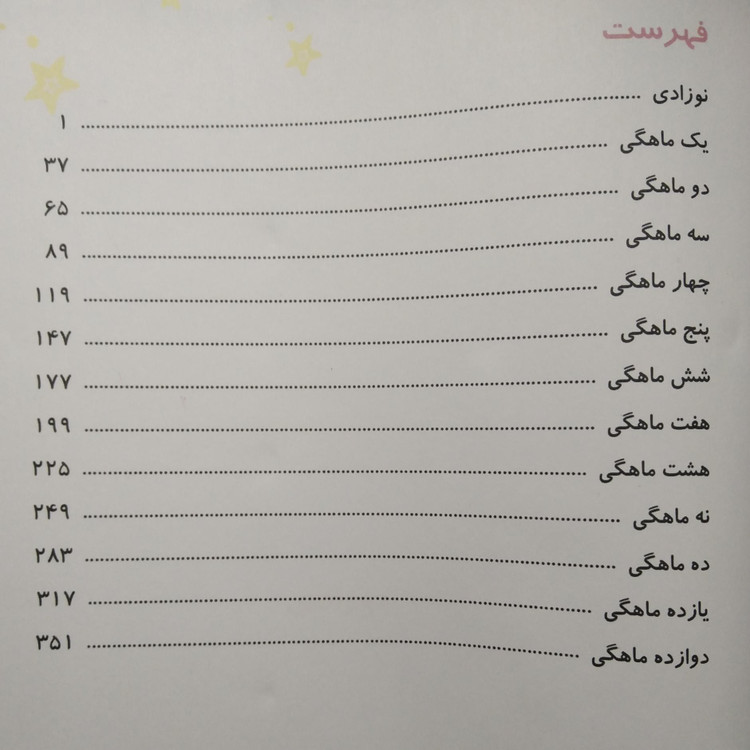 فهرست
نوزادی ........................................ ۱
یک ماهگی ........................................ ۳۷
دو ماهگی ........................................ ۶۵
سه ماهگی ........................................ ۸۹
چهار ماهگی ........................................ ۱۱۹
پنج ماهگی ........................................ ۱۴۷
شش ماهگی ........................................ ۱۷۷
هفت ماهگی ........................................ ۱۹۹
هشت ماهگی ........................................ ۲۲۵
نه ماهگی ........................................ ۲۴۹
ده ماهگی ........................................ ۲۸۳
یازده ماهگی ........................................ ۳۱۷
دوازده ماهگی ........................................ ۳۵۱